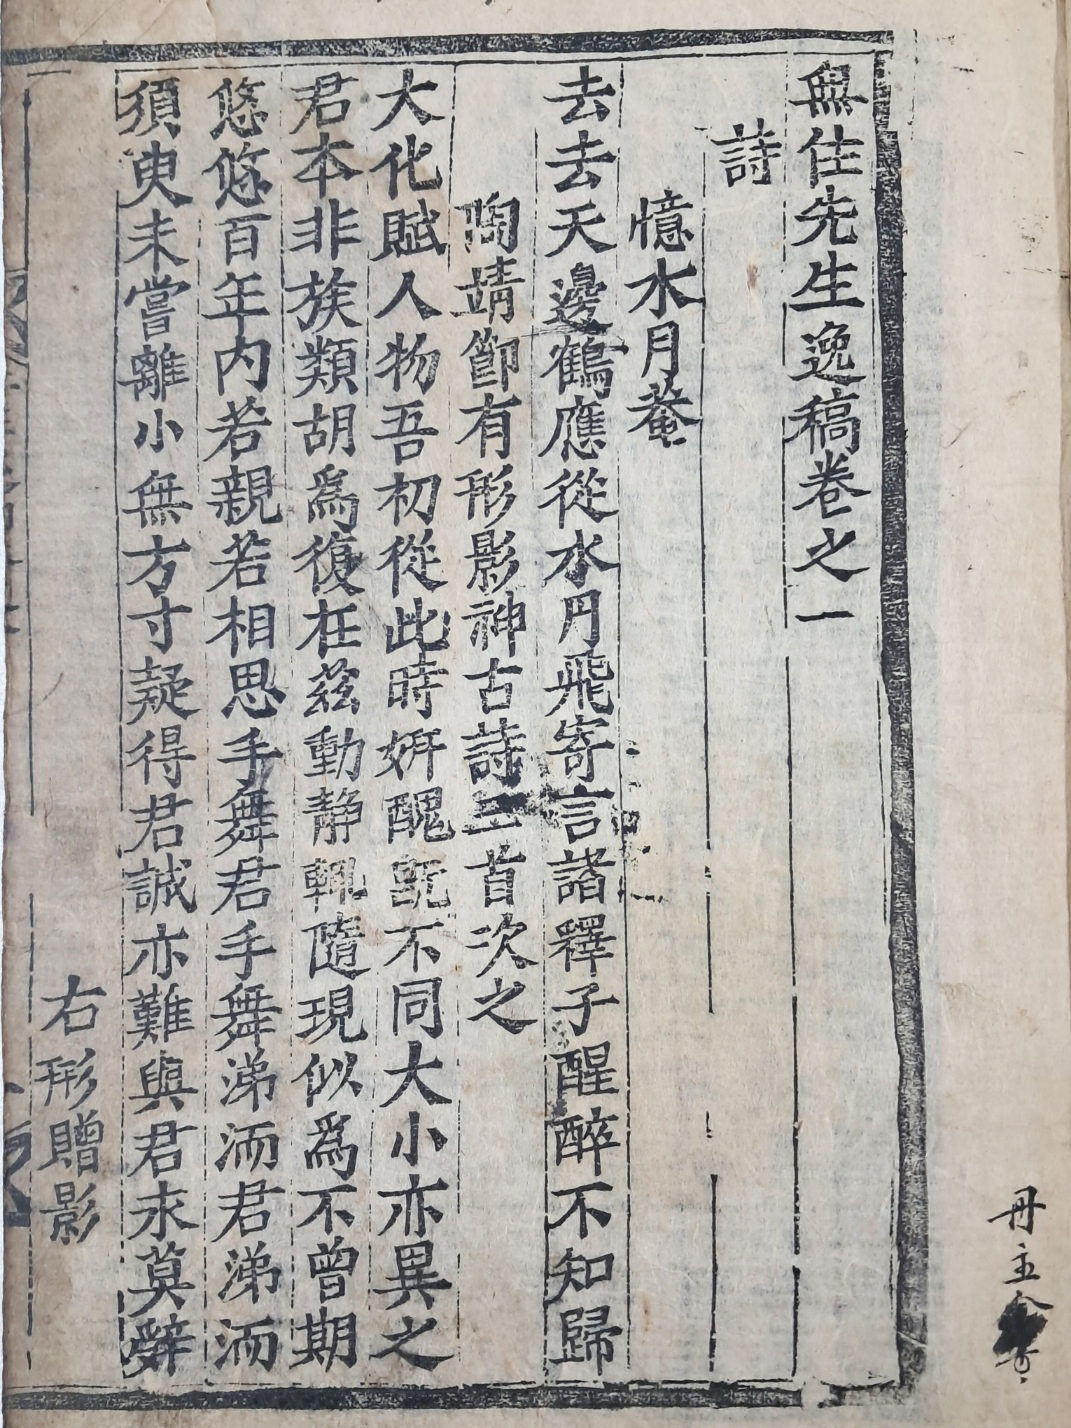 無住先生逸稿卷之一
詩
憶水月菴
去去天邊鶴應從水月飛寄言諸釋子醒醉不知歸
陶靖節有形影神古詩三首次之
大化賦人物吾初從此時姸醜旣不同大小亦異之
君本非族類胡爲復在玆動静輒隨現似爲不曾期
悠悠百年内若親若相思手舞君手舞涕洏君涕洏
須臾未嘗離小無方寸疑得君誠亦難與君永莫辭
右形贈影
册主